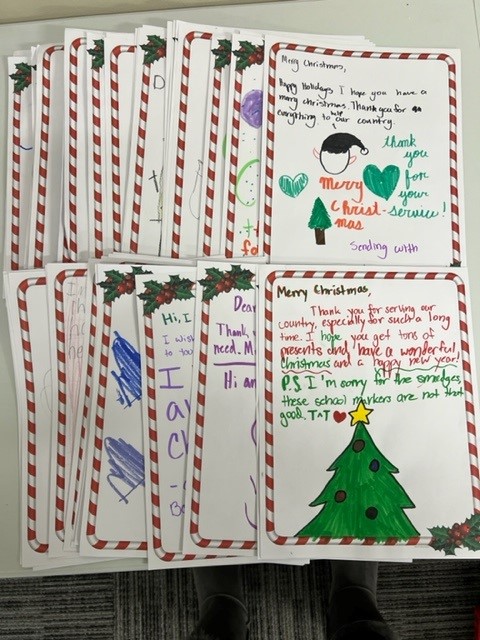 Merry Christmas,
Happy Holidays I hope you have a
merry christmas. Thank you for
everything to help our country.
thank
you
for
your
service!
Merry
Christ-
mas
Sending with
D
Merry Christmas,
Thank you for serving our
country, especially for such a long
time. I hope you get tons of
presents and have a wonderful
Christmas and a happy new year!
P.S I'm sorry for the smudges,
these school markers are not that
good. T^T
Dear
Thank
need. M
Hi an
Hi, I
I wis
to you
I